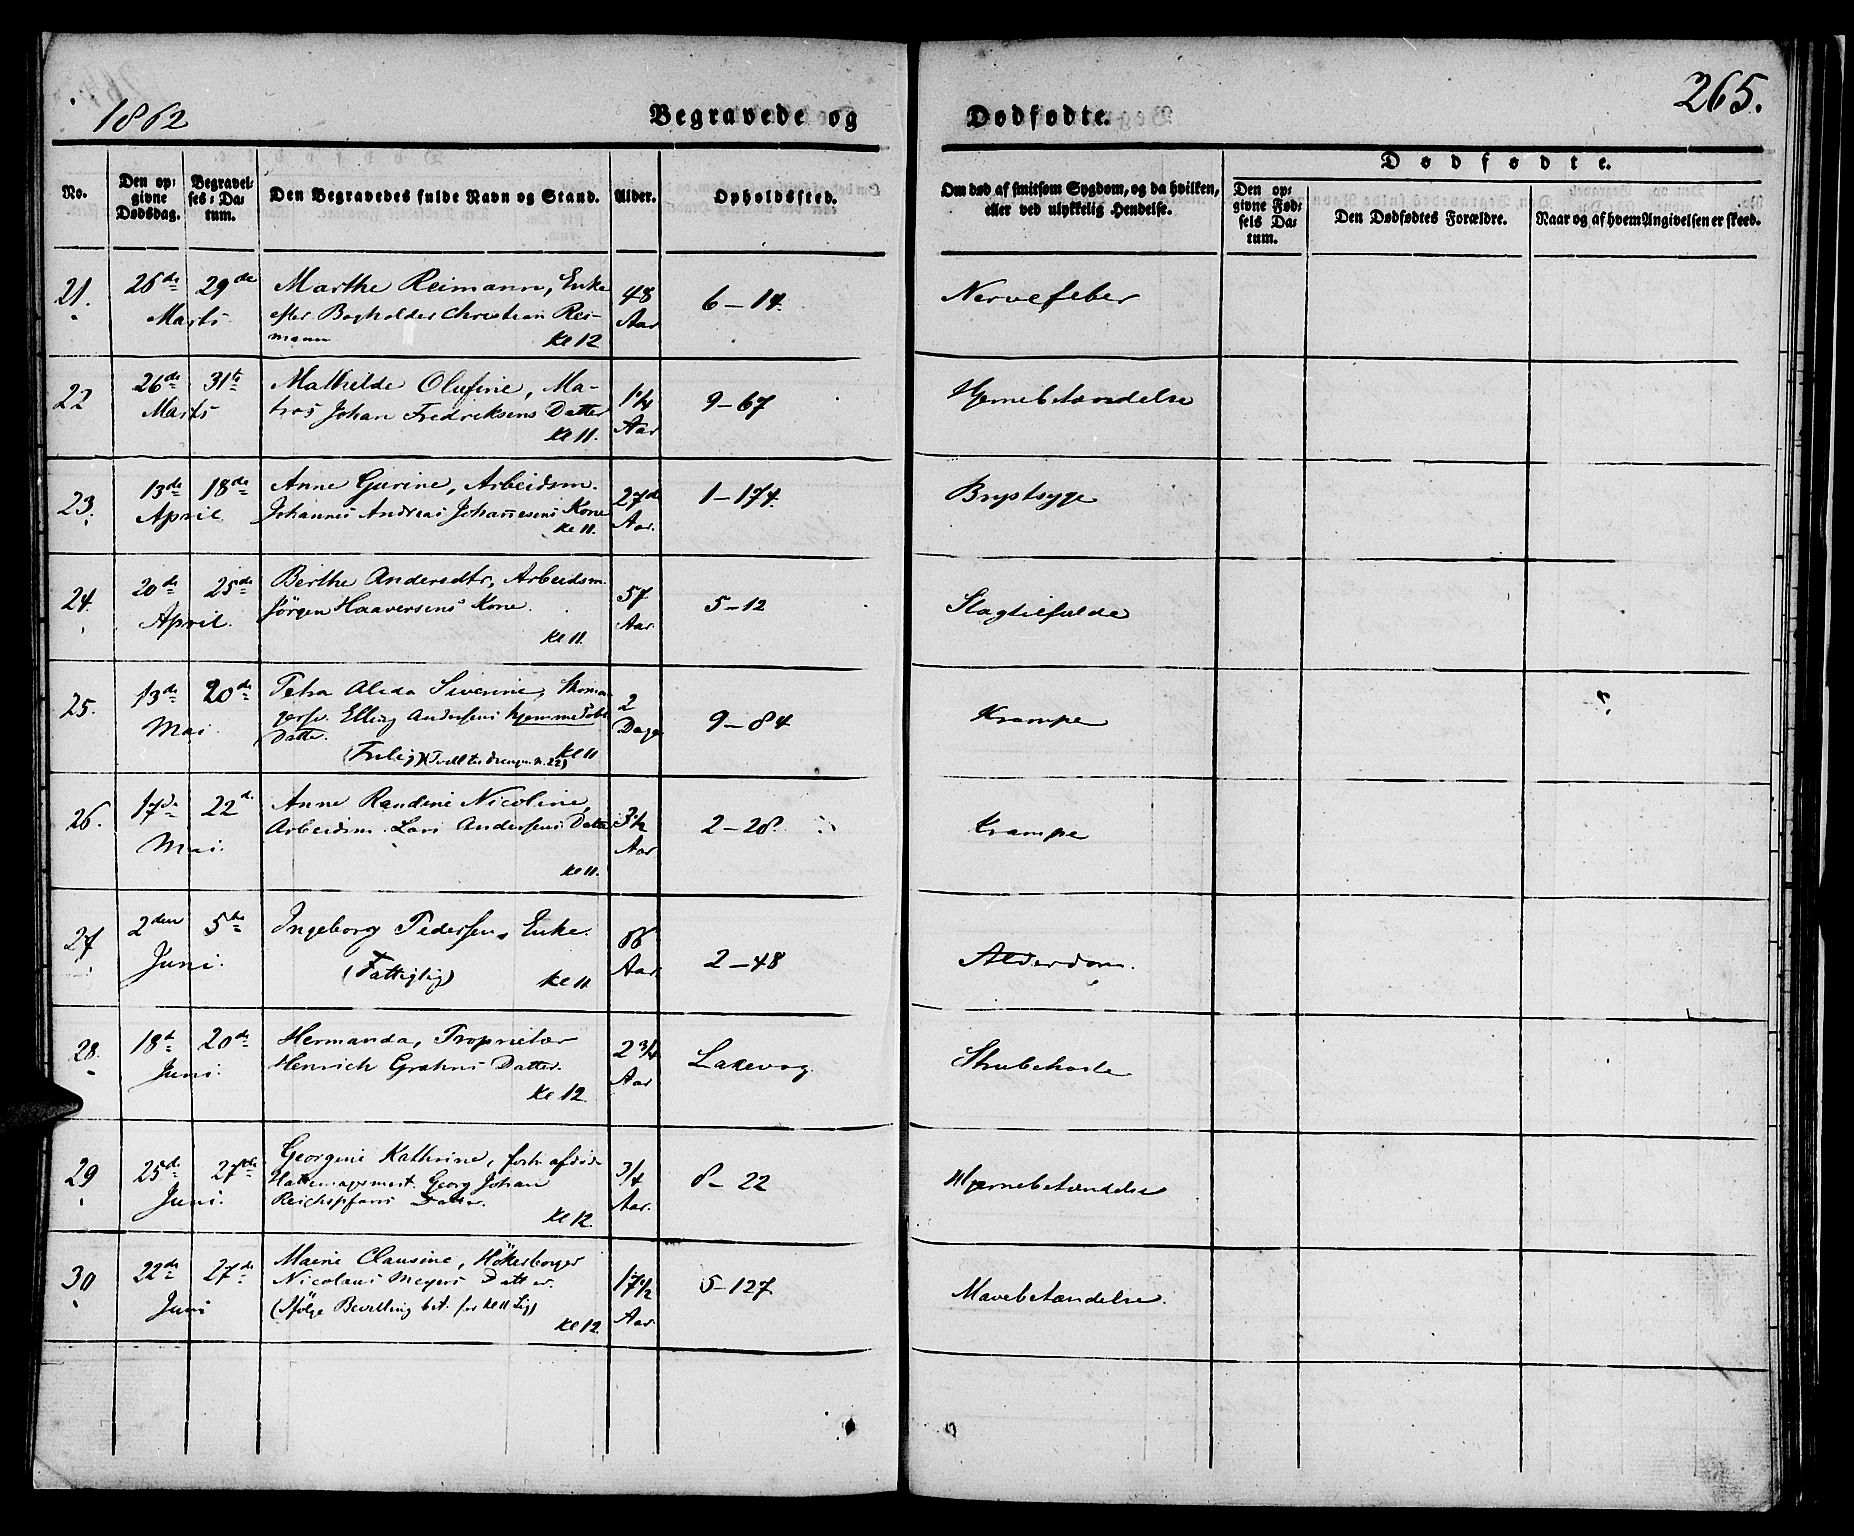 1862
Begravede og Dødfødte.
265.
No.
Den op-
givne
Dødsdag.
Begravel-
ses-Da-
tum.
Den Begravedes fulde Navn og Stand.
Alder.
Opholdssted.
Om død af smitsom Sygdom, og da hvilken,
eller ved ulykkelig Hendelse.
Dødfødte.
Den op-
givne Fød-
sels Da-
tum.
Den Dødfødtes Forældre.
Naar og af hvem Angivelsen er skeed.
21.
26de
29de
Marts
Marthe Reimann, Enke
efter Bogholder Christian Rei-
mann
Kl 12
48
Aar
6-14.
Nervefeber
22
26de
31te
Marts
Mathilde Olufine, Ma-
tros Johan Fredriksens Datter
Kl 11.
1 1/4
Aar
9-67
Hjernebetændelse
23.
13de
18de
April
Anne Gurine, Arbeidsm.
Johannes Andreas Johannesens Kone
Kl 11.
27
Aar.
1-174.
Brystsyge
24.
20de
25de
April.
Berthe Andersdtr, Arbeidsm.
Jørgen Haaversens Kone.
Kl 11.
57
Aar.
5-12
Slagtilfælde
25.
13de
20de
Mai
Petra Alida Siverine, Skoma-
gersv. Elling Andersens hjemmedøbt
Datter.
Kl 11
2
Dage
9-84
Krampe
26.
17de
22de
Mai.
Anne Randine Nicoline,
Arbeidsm. Lars Andersens Datter
Kl 11.
3 1/2
Aar
2-28.
Krampe
27
2den
5te
Juni.
Ingeborg Pedersen, Enke.
(Fattiglig)
Kl 11.
86
Aar.
2-48
Alderdom.
28.
18de
20de
Juni.
Hermanda, Proprietær
Henrich Grahns Datter.
Kl 12.
2 3/4
Aar
Laxevog
Strubehoste
29
25de
27de
Juni.
Georgine Kathrine, forh. afdøde
Hattemagermest. Georg Johan
Reichspfans Datter.
Kl 12.
3/4
Aar.
8-22
Hjernebetændelse
30
22de
27de
Juni
Marie Clausine, Høkerborger
Nicolaus Meyers Datter.
(Ifølge Bevilling bet. for Kl 11 Lig)
Kl 12
17 1/2
Aar
5-127
Mavebetændelse.